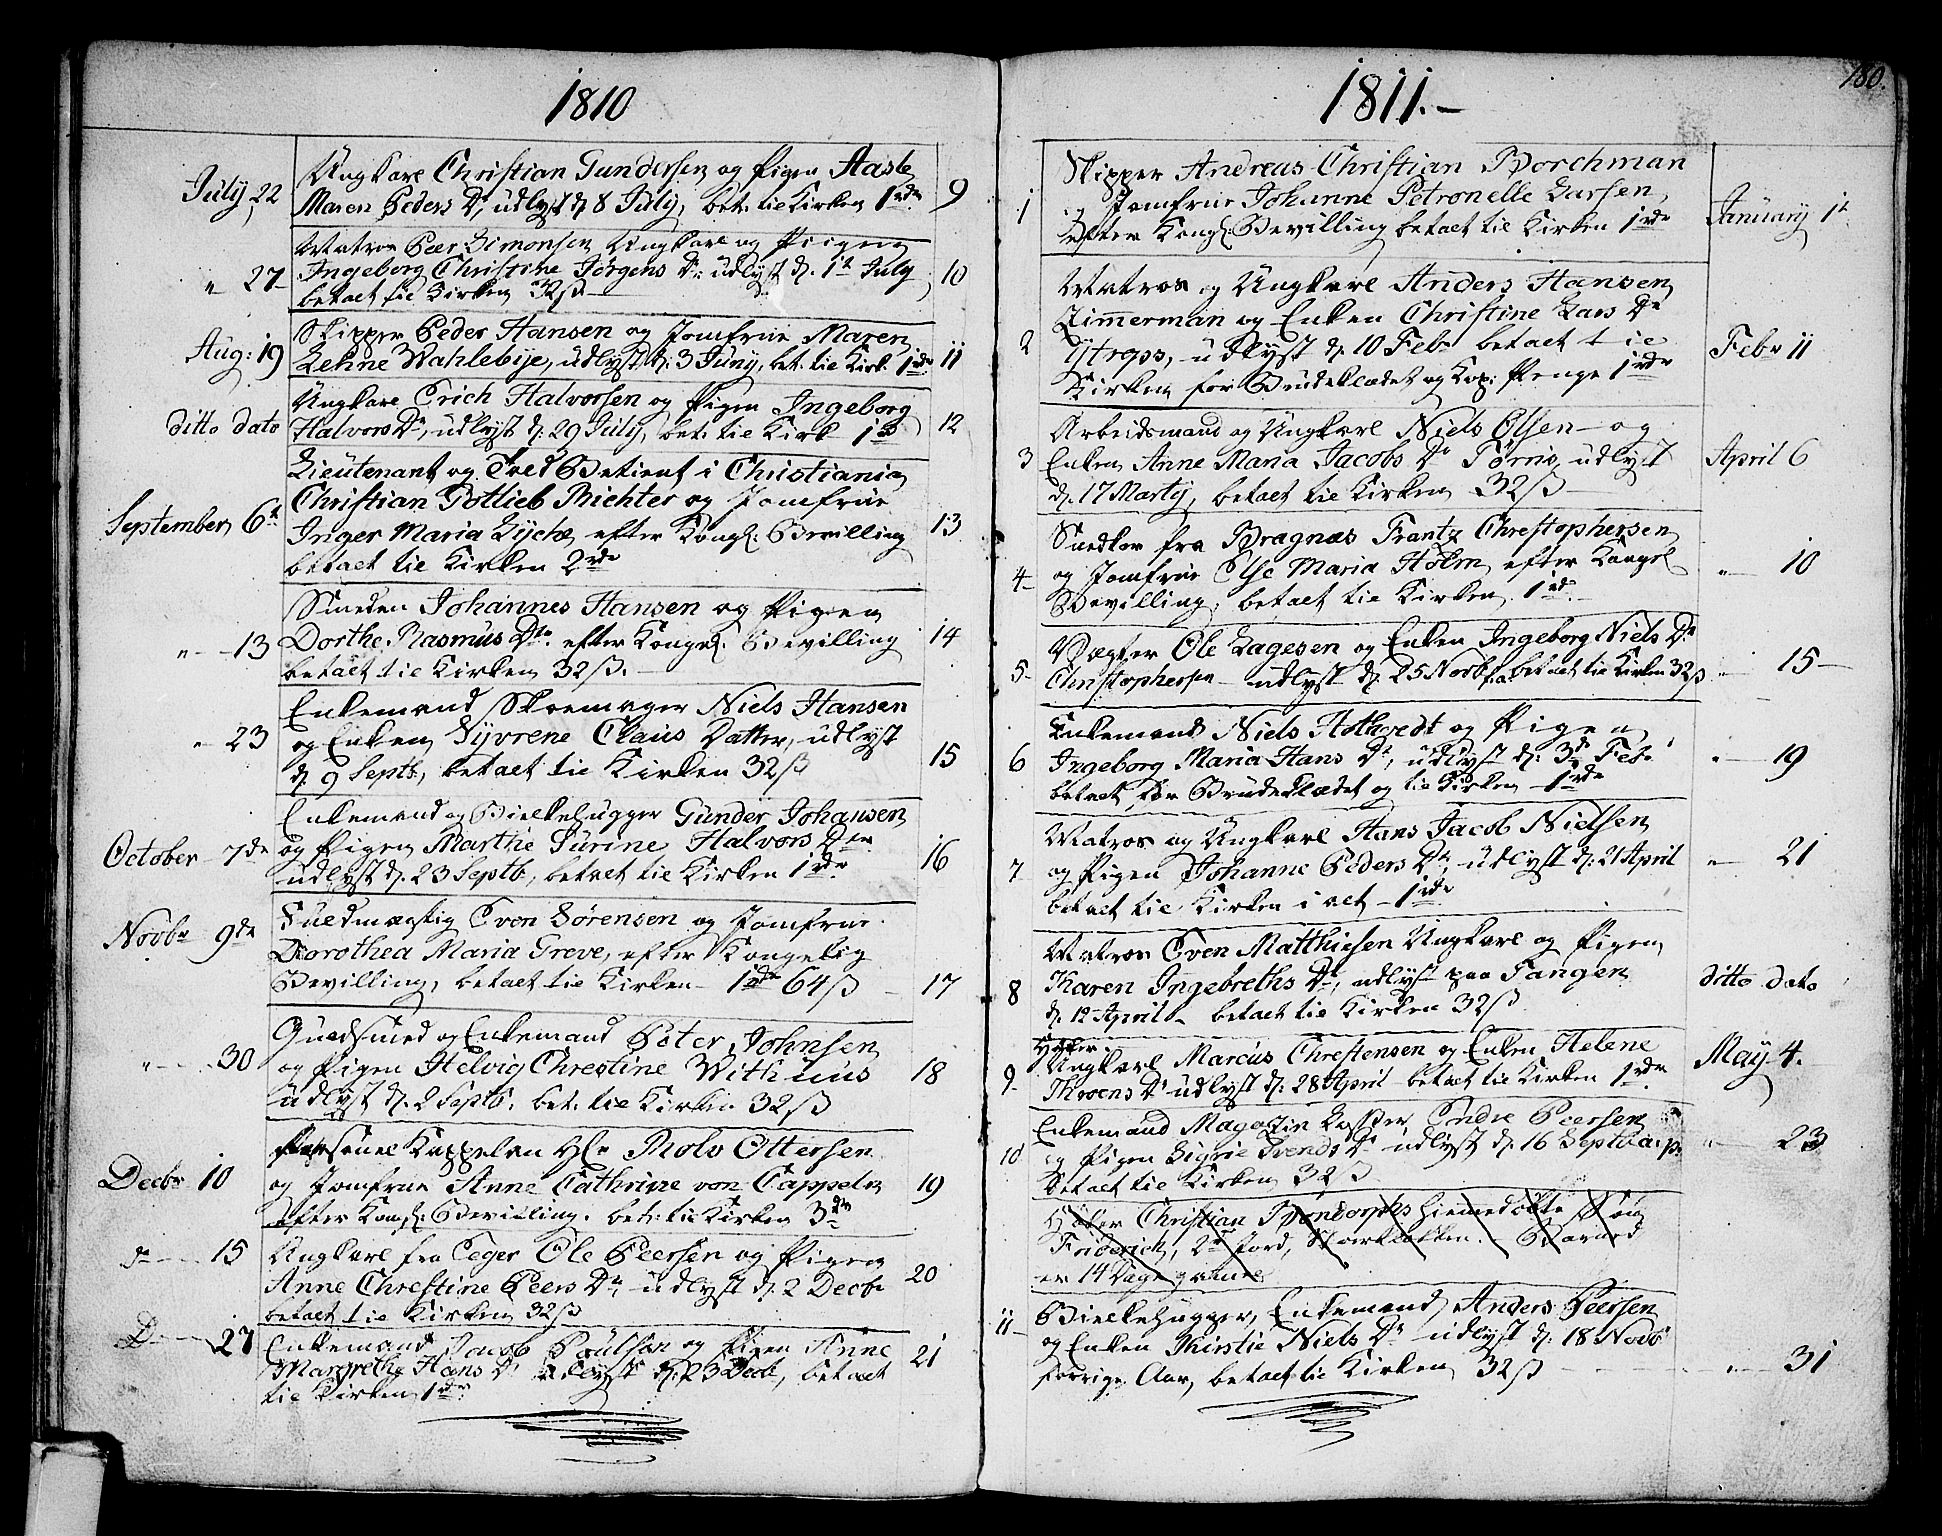 1810
July, 22
Ungkarl Christian Gundersen og Pigen Aaste
Maren Peders Dr, udlyst d: 8 July, bet: til Kirken 1rdr
9
" 27
Matros Peer Simonsen Ungkarl og Piigen
Ingeborg Christine Jörgens Dr: udlyst d. 1te July
betalt til Kirken 32ß
10
Aug: 19
Skipper Peder Hansen og Jomfrue Maren
udlyst d: 3 Juny, bet: til Kirk: 1rdr
11
ditto dato
Ungkarl Erich Halvorsen og Pigen Ingeborg
Halvors Dr, udlyst d: 29 July, bet: til Kirk 1rdr
12
September 6te
Lieutenant og Toldbetient i Christiania
Christian Gottlieb Richter og Jomfrue
Inger Maria Lyche, efter Kongl: Bevilling
betalt til Kirken 2rdr
13
" 13
Smeden Johannes Hansen og Pigen
Dorthe Rasmus Dtr. efter Kongel. Bevilling
betalt til Kirken 32ß.
14
" 23
Enkemand Skoemager Niels Hansen
og Enken Syvrene Claus Datter, udlyst
d. 9 Septb, betalt til Kirken 32ß
15
October 7de
Enkemand og Bielkehugger Gunder Johansen
og Pigen Marthe Surine Halvors Dtr
udlyst d. 23 Septb, betalt til Kirken 1rdr
16
Novbr 9de
Fuldmægtig Even Sörensen og Jomfrue
Dorothea Maria Greve, efter Kongelig
Bevilling, betalt til Kirken 1rdr 64ß
17
" 30
Guldsmed og Enkemand Peter Johnsen
og Pigen Helvig Chrestine Withuus
udlyst d. 2 Septb, bet: til Kirken 32ß
18
Decbr 10
Personel Kappelan Hr Rolv Ottersen
og Jomfrue Anne Cathrine von Cappeln
efter Kongl: Bevilling. bet: til Kirken 3rdr
19
15
Ungkarl fra Eeger Ole Peersen og Pigen
Anne Chrestine Peers Dr, udlyst d. 2 Decbr
betalt til Kirken 32ß
20
D 27
Enkemand Jacob Poulsen og Pigen Anne
Margrethe Hans Dr udlyst d. 23 Decb, betalt
til Kirken 1rdr
21
1811.
180.
1
Skipper Andreas Christian Borchman
og Jomfrue Johanne Petronelle Larsen,
efter Kongl: Bevilling betalt til Kirken 1rdr
January 1te
2
Matros og Ungkarl Anders Hansen
Zimmerman og Enken Christine Lars Dr
Ytreps, udlyst d. 10 Febr betalt til
Kirken for Brudeklædet og Kop: Penge 1rdr
Febr 11
3
Arbeidsmand og Ungkarl Niels Olsen og
Enken Anne Maria Jacobs Dr Törris, udlyst
d. 17 Martj, betalt til Kirken 32ß
April 6
4
Snedker fra Bragnæs Frantz Chrestophersen
og Jomfrue Else Maria Holm efter Kongel
Bevilling, betalt til Kirken 1rdr
" 10
5
Vægter Ole Lagesen og Enken Ingeborg Niels Dr
Christophersen udlyst d. 25 Novb f.a. betalt til Kirken 32ß
" 15
6
Enkemand Niels Hothvedt og Pigen
Ingeborg Maria Hans Dr, udlyst d: 3de Feb:
betalt for Brudeklædet og til Kirken 1rdr
" 19
7
Matros og Ungkarl Hans Jacob Nielsen
og Pigen Johanne Peders Dr, udlyst d. 21 April
betalt til Kirken i alt 1rdr
" 21
8
Matros Even Matthiesen Ungkarl og Pigen
Karen Ingebreths Dr, udlyst paa Tangen
d. 12 April betalt til Kirken 32ß
ditto dato
9
Höker
Ungkarl Marcus Chrestensen og Enken Helene
Throens Dr udlyst d. 28 April betalt til Kirken 1rdr
May 4.
10
Enkemand Magazin Endre Peersen
og Pigen Sigrie Svends Dr udlyst d. 16 Septb a: p:
betalt til Kirken 32ß
" 23
Höker Christian Hiemedöbte Sön
Friderich, 2 Jord,
er 14 Dage gammel
11
Bielkehugger, Enkemand, Anders Peersen
og Enken Kirstie Niels Dr udlyst d. 18 Novb
forrige Aar, betalt til Kirken 32ß
" 31